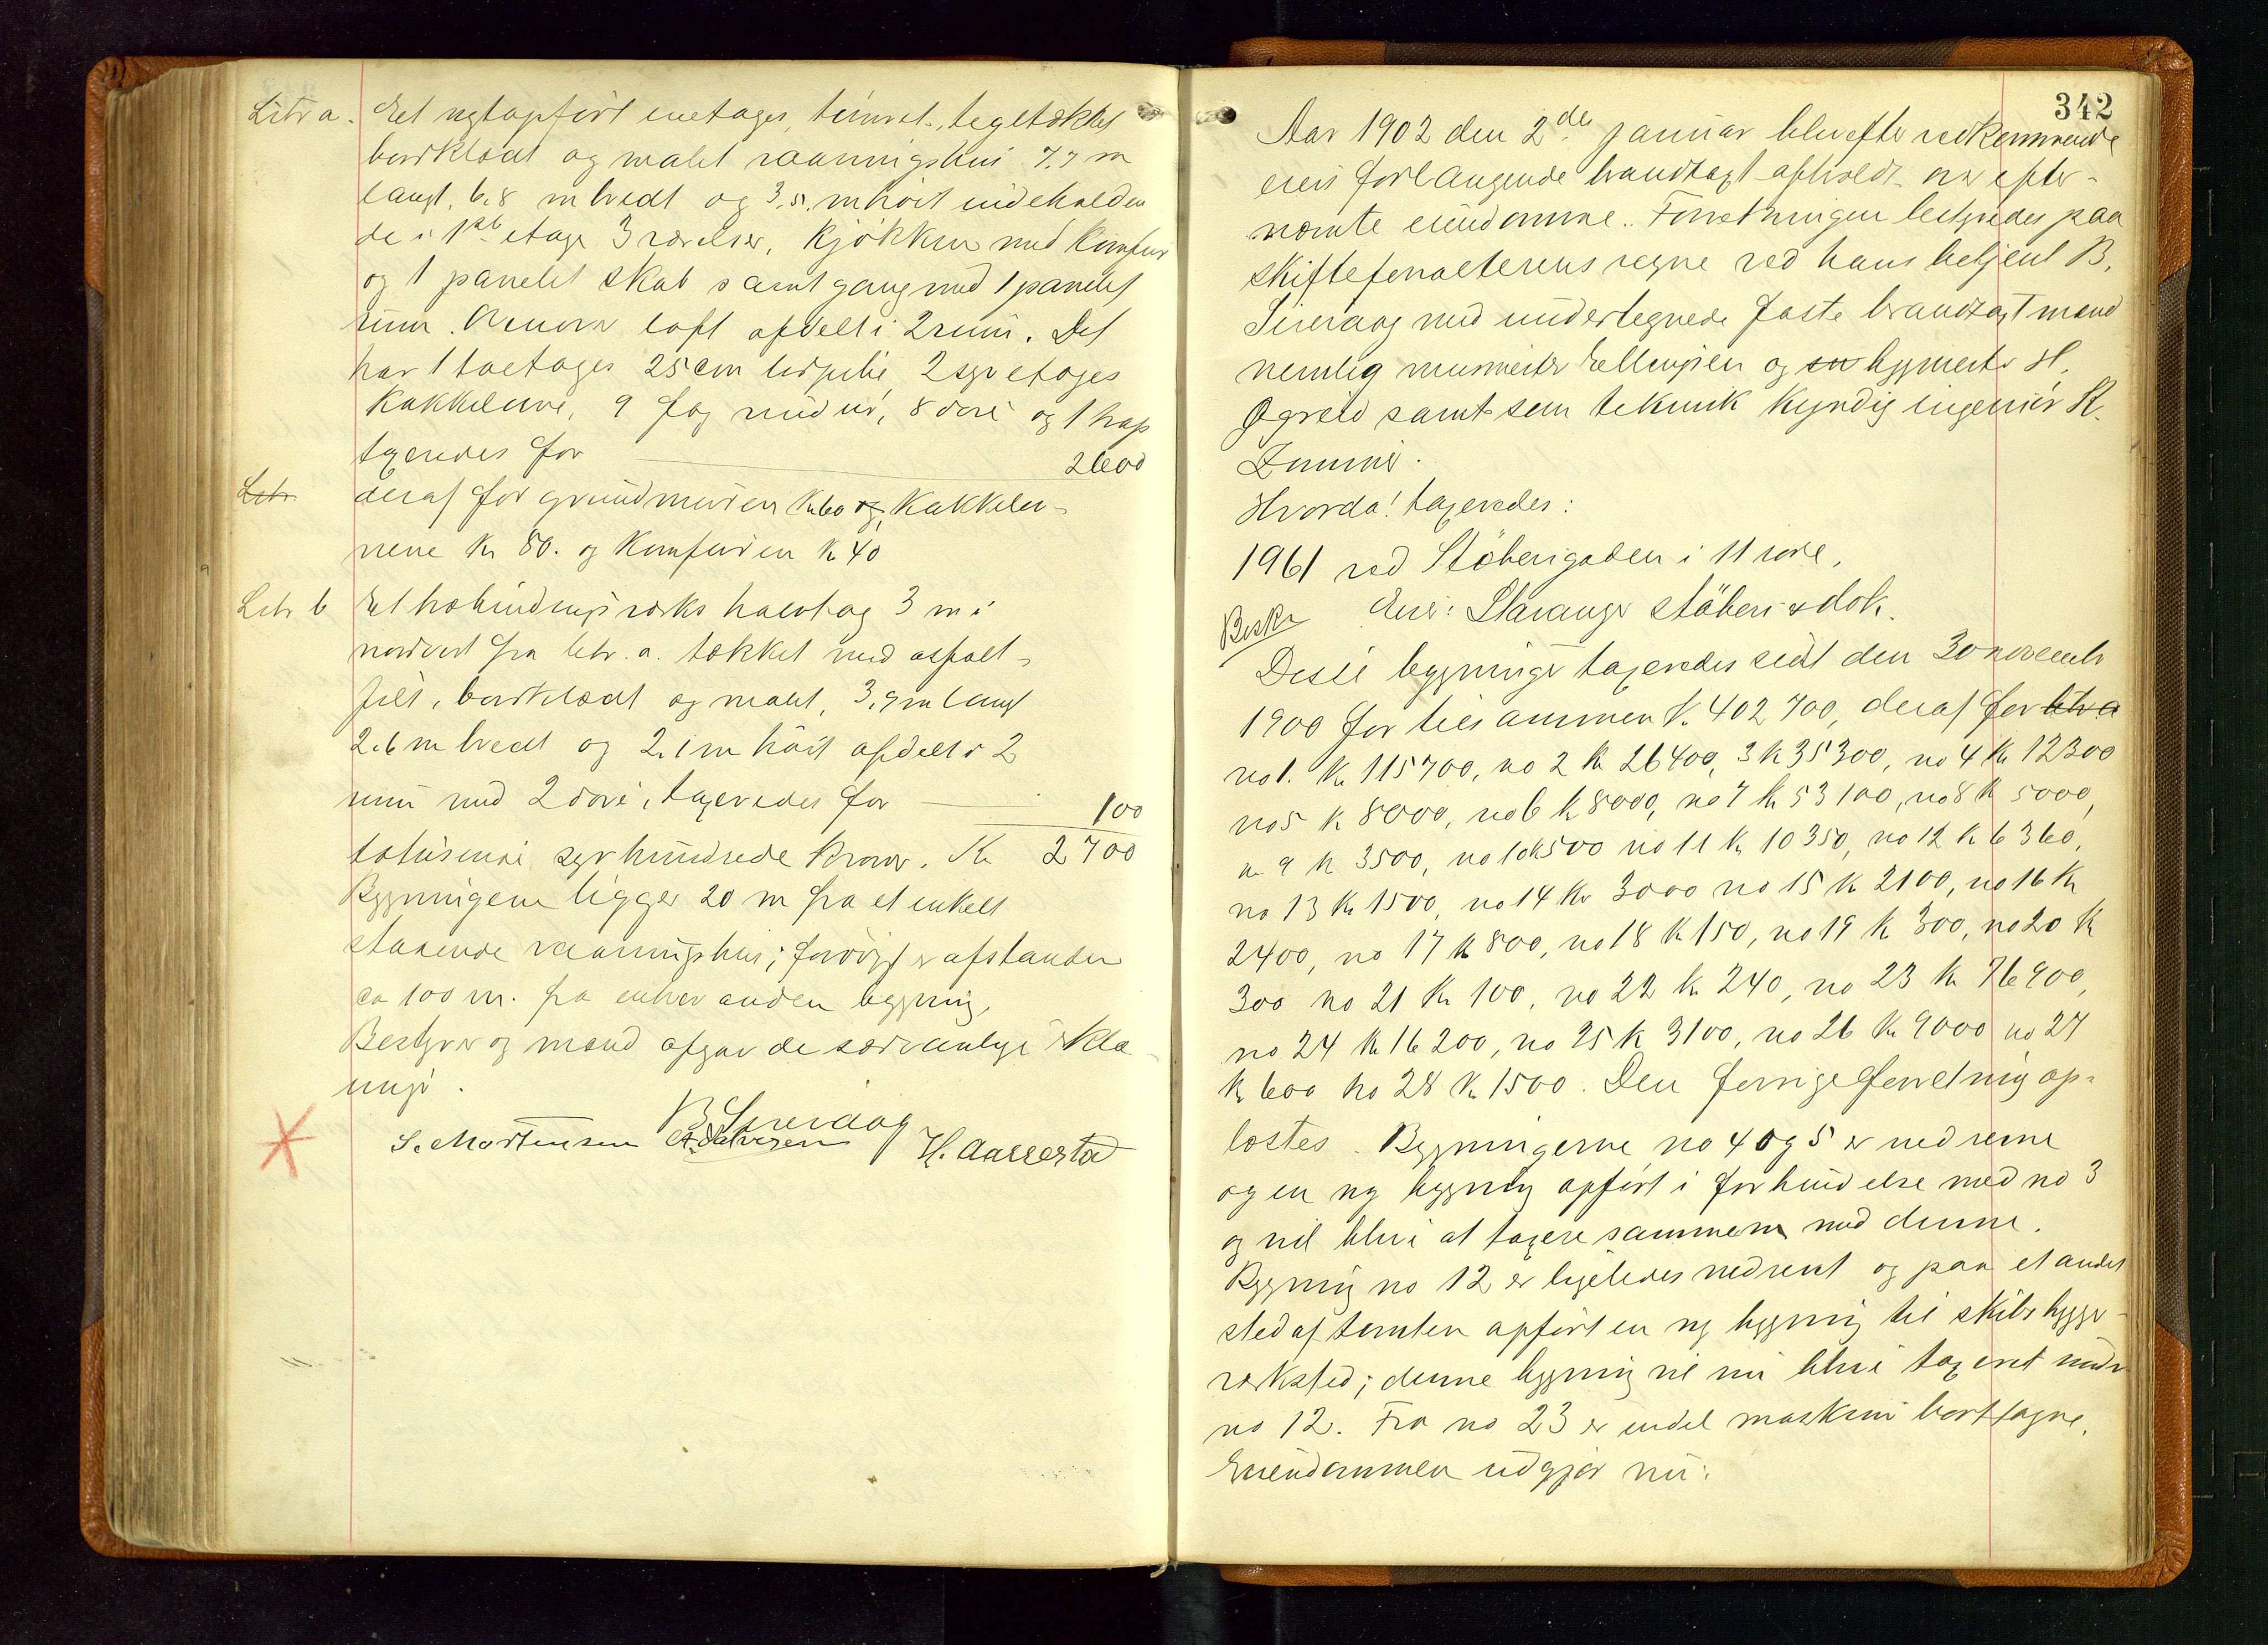 Litr a. Et nytopført enetages, tømret, tegltækket
bordklædt og malet vaaningshus 7,7 m
langt, 6,8 m bredt og 3,5 m höit indeholden
de i 1ste etage 3 værelser, kjøkken med komfur
og 1 panelet skab samt gang med 1 panelet
rum. Ovenover loft afdelt i 2 rum. Det
har 1 toetages 25 cm. 2 syv etages
kakkelovne, 9 fag vinduer, 8 døre og 1 trap
taxeredes for 2600
Litr deraf for grundmuren K 60 og kakkelov-
nene Kr 80. og Komfuren K 40
Litr b Et træbindingsværks halvtag 3 m i
nordvest fra litr. a. tækket med asfalt-
filt, bordklædt og malet, 3,9 m langt
2.6 m bredt og 2.1 m höit afdelt i 2
rum med 2 døre, taxeredes for 100
totusene syvhundrede kroner. Kr 2700
Bygningene ligger 20 m fra et enkelt
staaende vaaningshus; forövrigt er afstanden
ca 100 m. fra enhver anden bygning.
Bestyrer og mænd afgav de sædvanlige erklæ-
ringer.
B Sireraag
S. Mortensen A. Salvesen H. Aasrestad
342
Aar 1902 den 2den januar blev efter vedkommende
eiers forlangende brandtaxt afholdt over efter-
nævnte eiendomme. Forretningen bestyredes paa
skifteforvalterens vegne ved hans betjent B.
Sireraag med undertegnede faste brandtaxtmænd
nemlig murmester Ellingsen og en bygmester H.
Øgreid samt som teknik kyndig ingeniør K.
Zimmer.
Hvorda! taxeredes:
1961 ved Støberigaden i 11 rode.
Eier: Stavanger støberi & dok.
Beskr
Disse bygninger taxeredes sidst den 30 november
1900 for tilsammen K. 402 700, deraf for litr a
no 1. Kr 115700, no 2 Kr 26400, 3 K 35300, no 4 Kr 12300
no 5 K 8000, no 6 K 8000, no 7 Kr 53100, no 8 K 5000,
no 9 K 3500, no 10 K 500 no 11 K 10350, no 12 K 6360,
no 13 Kr 1500, no 14 Kr 3000 no 15 K 2100, no 16 Kr
2400, no 17 K 800, no 18 K 150, no 19 K 300, no 20 K
300 no 21 Kr 100, no 22 K 240, no 23 Kr 76900,
no 24 Kr 16200, no 25 K 3100, no 26 Kr 9000 no 27
K 600 no 28 K 1500. Den forrige forretning op-
læstes. Bygningerne no 4 og 5 er nedrevne
og en ny bygning opført i forbindelse med no 3
og vil blive at taxere sammen med denne.
Bygning no 12 er ligeledes nedrevet og paa et andet
sted af tomten opført en ny bygning til skibsbygge-
verksted; denne bygning vil nu blive taxeret under
no 12. Fra no 23 er endel maskiner borttagne.
Eiendommen udgjør nu: